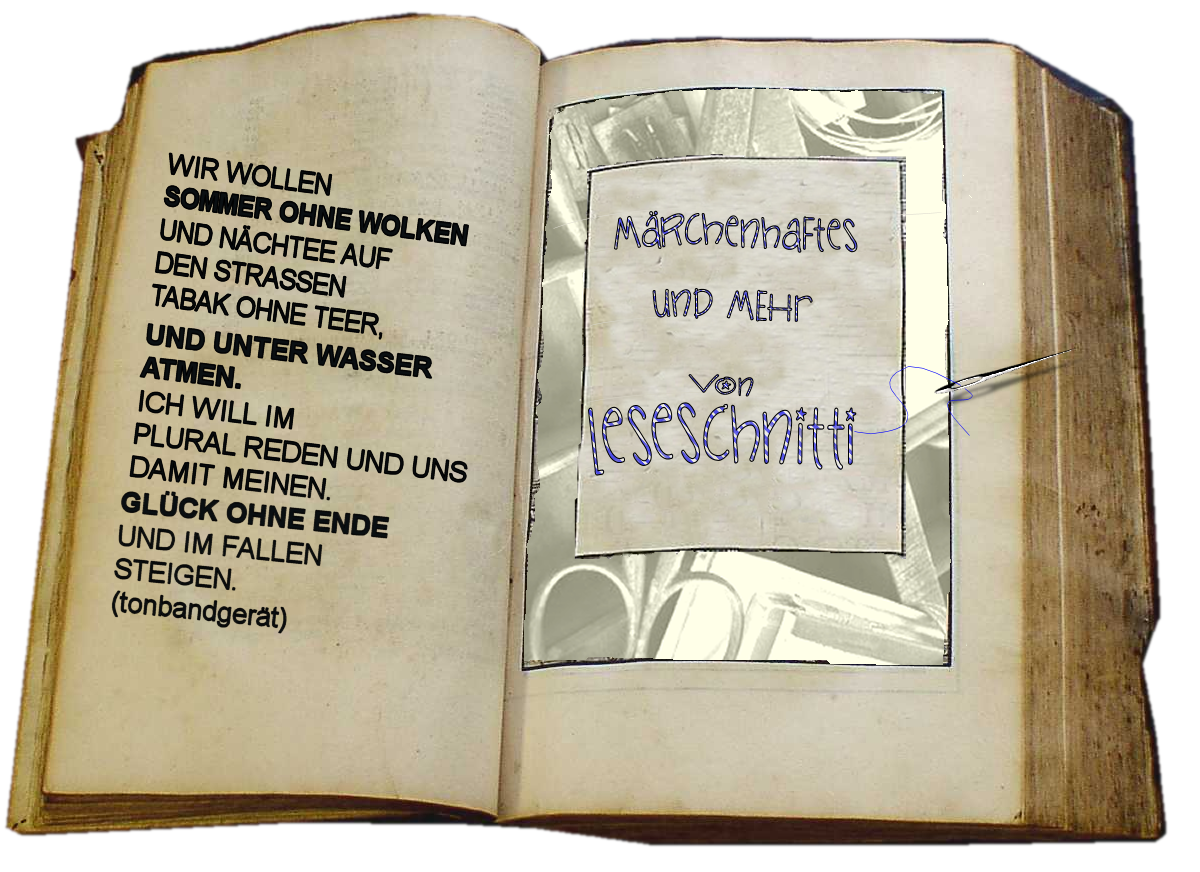 WIR WOLLEN
SOMMER OHNE WOLKEN
UND NÄCHTEE AUF
DEN STRASSEN
TABAK OHNE TEER,
UND UNTER WASSER
ATMEN.
ICH WILL IM
PLURAL REDEN UND UNS
DAMIT MEINEN.
GLÜCK OHNE ENDE
UND IM FALLEN
STEIGEN.
(tonbandgerät)
MÄRchenhaftes
und MEHr
von
leseschnitti